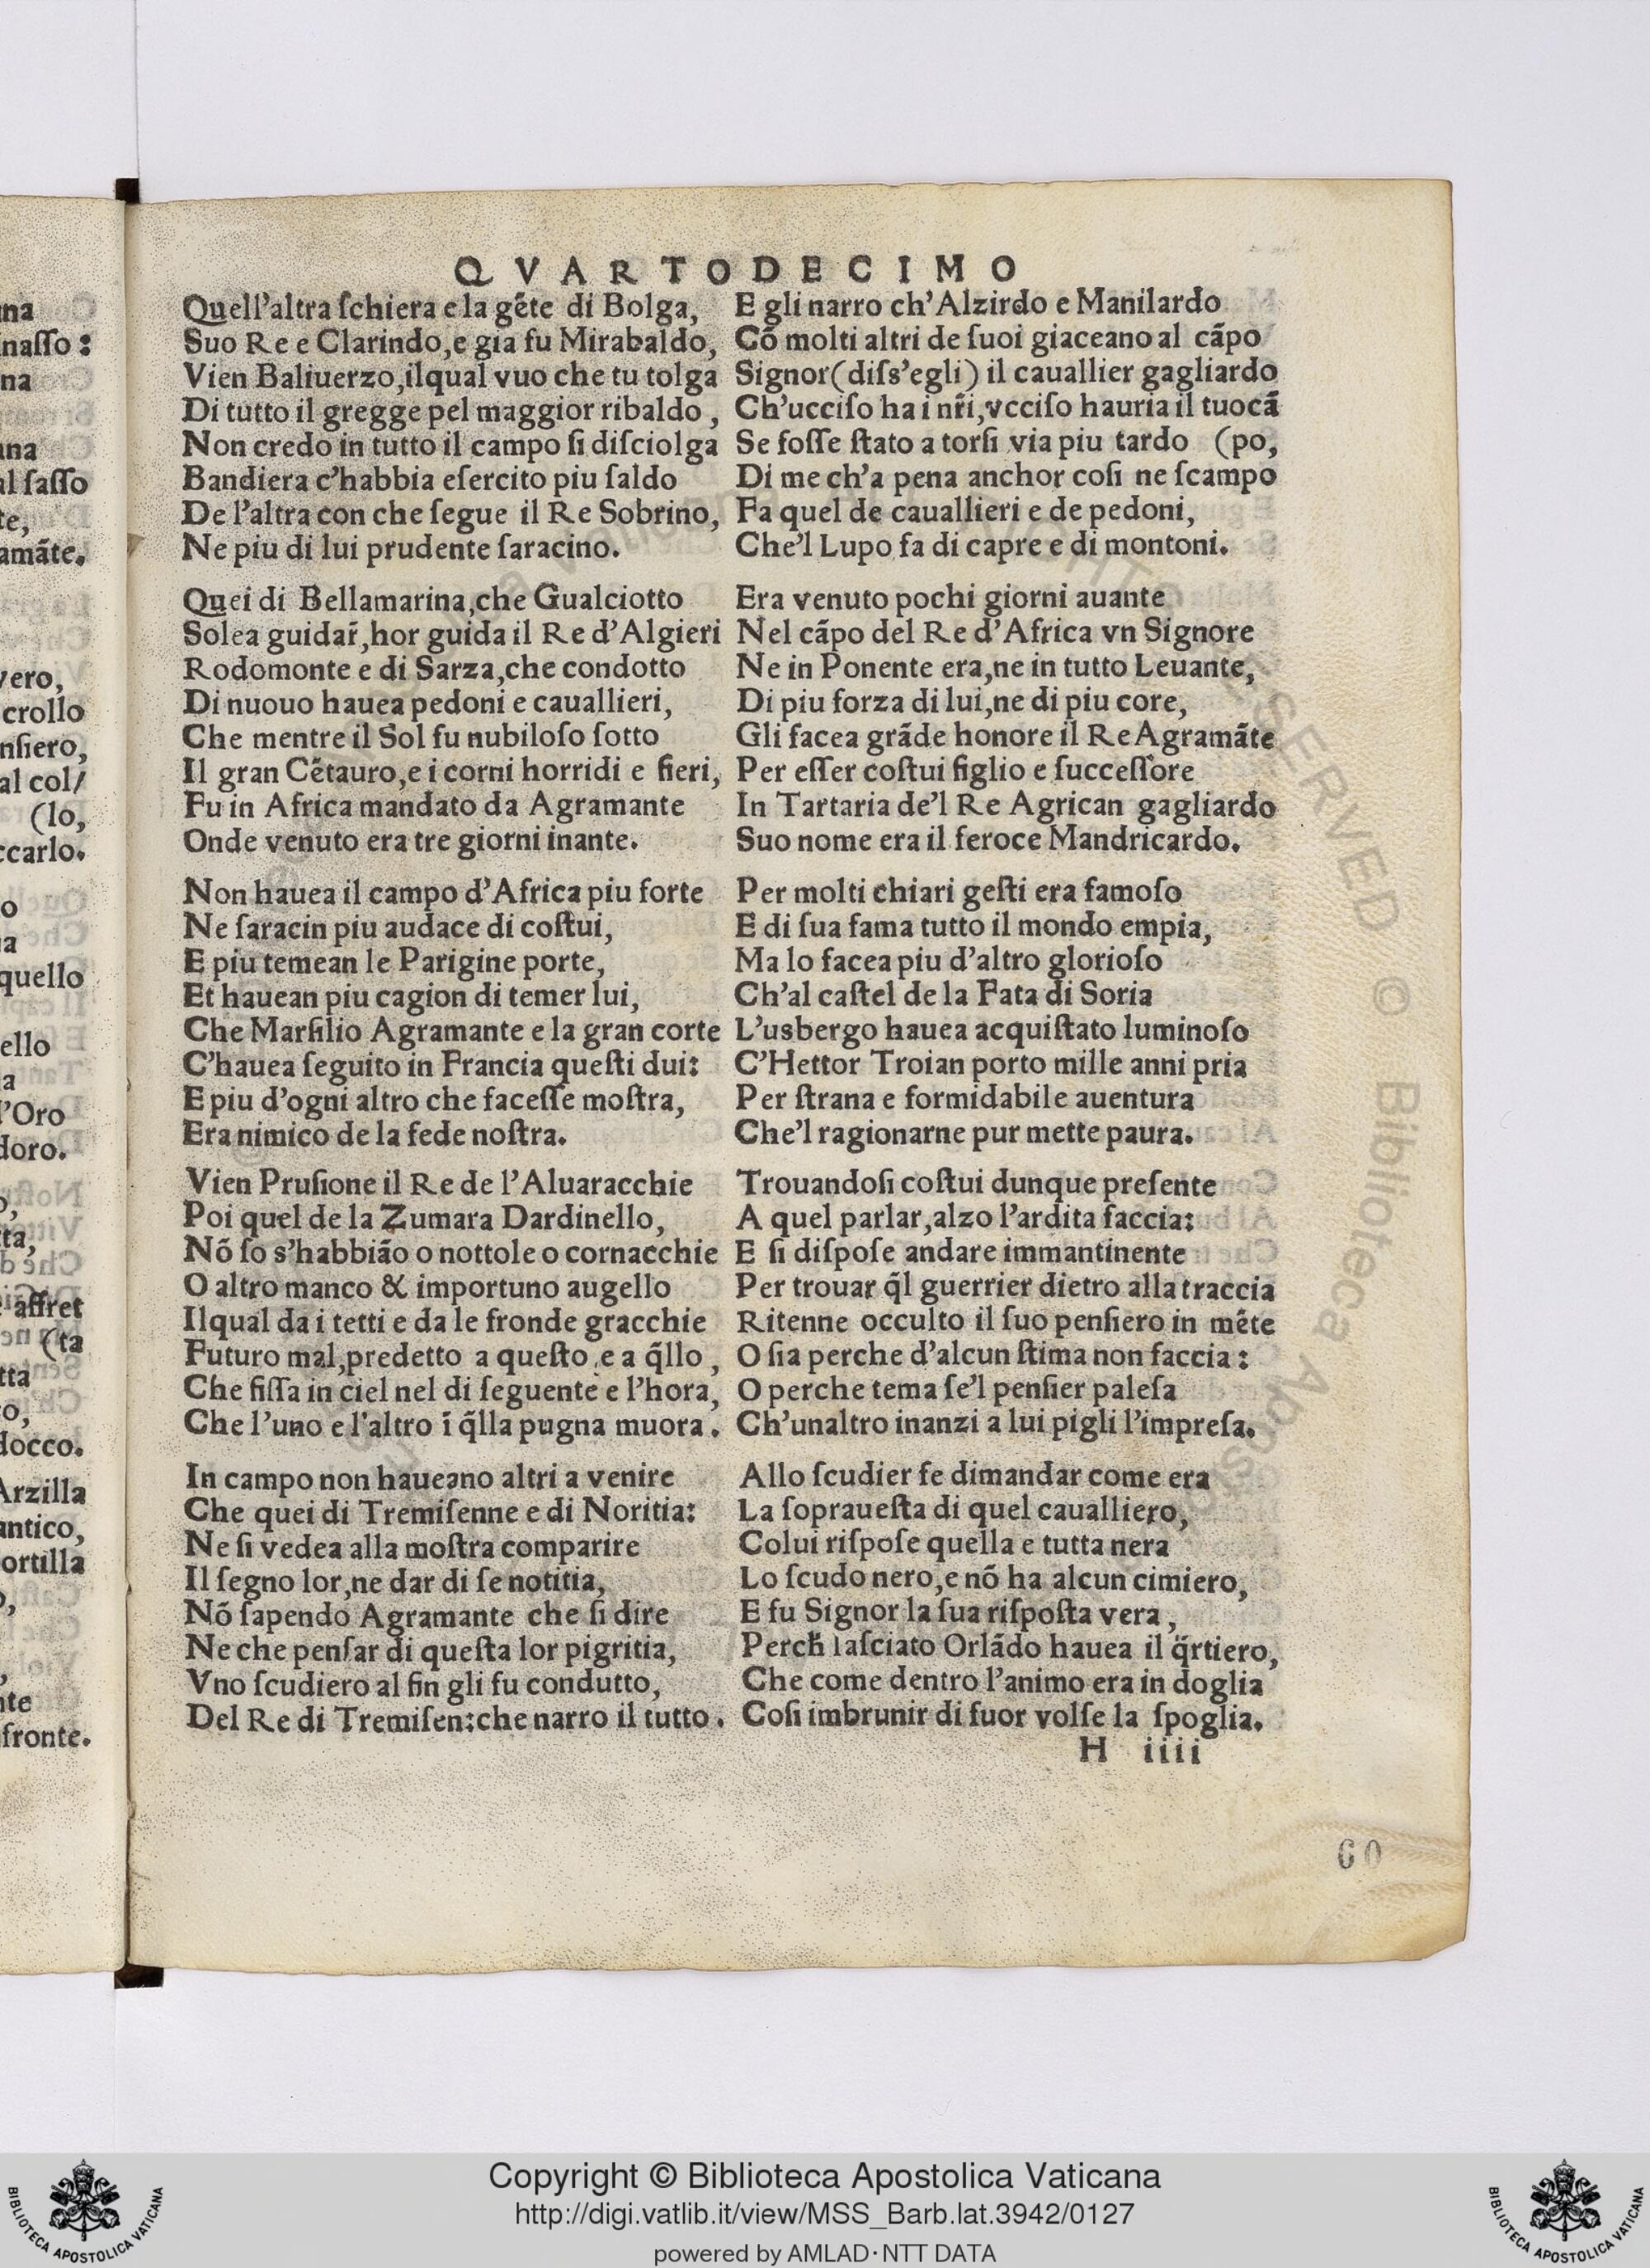 QVARTODECIMO
Quell'altra ſchiera e la gẽte di Bolga,
Suo Re e Clarindo,e gia fu Mirabaldo,
Vien Baliuerzo,ilqual vuo che tu tolga
Di tutto il gregge pel maggior ribaldo,
Non credo in tutto il campo ſi diſciolga
Bandiera c'habbia eſercito piu ſaldo
De l'altra con che ſegue il Re Sobrino,
Ne piu di lui prudente ſaracino.
Quei di Bellamarina,che Gualciotto
Solea guidar̃,hor guida il Re d'Algieri
Rodomonte e di Sarza,che condotto
Di nuouo hauea pedoni e cauallieri,
Che mentre il Sol fu nubiloſo ſotto
Il gran Cẽtauro,e i corni horridi e fieri,
Fu in Africa mandato da Agramante
Onde venuto era tre giorni inante.
Non hauea il campo d'Africa piu forte
Ne ſaracin piu audace di coſtui,
E piu temean le Parigine porte,
Et hauean piu cagion di temer lui,
Che Marſilio Agramante e la gran corte
C'hauea ſeguito in Francia queſti dui:
E piu d'ogni altro che faceſſe moſtra,
Era nimico de la fede noſtra.
Vien Pruſione il Re de l'Aluaracchie
Poi quel de la Zumara Dardinello,
Nõ ſo s'habbião o nottole o cornacchie
O altro manco & importuno augello
Ilqual da i tetti e da le fronde gracchie
Futuro mal,predetto a queſto e a q̃llo,
Che fiſſa in ciel nel di ſeguente e l'hora,
Che l'uno e l'altro ĩ q̃lla pugna muora.
In campo non haueano altri a venire
Che quei di Tremiſenne e di Noritia:
Ne ſi vedea alla moſtra comparire
Il ſegno lor,ne dar di ſe notitia,
Nõ ſapendo Agramante che ſi dire
Ne che penſar di queſta lor pigritia,
Vno ſcudiero al fin gli fu condutto,
Del Re di Tremiſen:che narro il tutto.
E gli narro ch'Alzirdo e Manilardo
Cõ molti altri de ſuoi giaceano al cãpo
Signor(diſs'egli) il cauallier gagliardo
Ch'ucciſo ha i nr̃i,vcciſo hauria il tuocã
Se foſſe ſtato a torſi via piu tardo (po,
Di me ch'a pena anchor coſi ne ſcampo
Fa quel de cauallieri e de pedoni,
Che'l Lupo fa di capre e di montoni.
Era venuto pochi giorni auante
Nel cãpo del Re d'Africa vn Signore
Ne in Ponente era,ne in tutto Leuante,
Di piu forza di lui,ne di piu core,
Gli facea grãde honore il Re Agramãte
Per eſſer coſtui figlio e ſucceſſore
In Tartaria de'l Re Agrican gagliardo
Suo nome era il feroce Mandricardo.
Per molti chiari geſti era famoſo
E di ſua fama tutto il mondo empia,
Ma lo facea piu d'altro glorioſo
Ch'al caſtel de la Fata di Soria
L'usbergo hauea acquiſtato luminoſo
C'Hettor Troian porto mille anni pria
Per ſtrana e formidabile auentura
Che'l ragionarne pur mette paura.
Trouandoſi coſtui dunque preſente
A quel parlar,alzo l'ardita faccia:
E ſi diſpoſe andare immantinente
Per trouar q̃l guerrier dietro alla traccia
Ritenne occulto il ſuo penſiero in mẽte
O ſia perche d'alcun ſtima non faccia:
O perche tema ſe'l penſier paleſa
Ch'unaltro inanzi a lui pigli l'impreſa.
Allo ſcudier fe dimandar come era
La ſoprauеſta di quel caualliero,
Colui riſpoſe quella e tutta nera
Lo ſcudo nero,e nõ ha alcun cimiero,
E fu Signor la ſua riſpoſta vera,
Perch̃ laſciato Orlãdo hauea il q̃rtiero,
Che come dentro l'animo era in doglia
Coſi imbrunir di fuor volſe la ſpoglia.
H iiii
60
na
naſſo:
na
una
al ſaſſo
te,
amãte.
vero,
crollo
nſiero,
al col/
(lo,
ccarlo.
o
a
quello
ello
a
l'Oro
doro.
o,
ta,
affret
(ta
tta
o,
docco.
Arzilla
antico,
ortilla
o,
nte
fronte.
Copyright © Biblioteca Apostolica Vaticana
http://digi.vatlib.it/view/MSS_Barb.lat.3942/0127
powered by AMLAD·NTT DATA
BIBLIOTECA APOSTOLICA VATICANA
BIBLIOTECA APOSTOLICA VATICANA